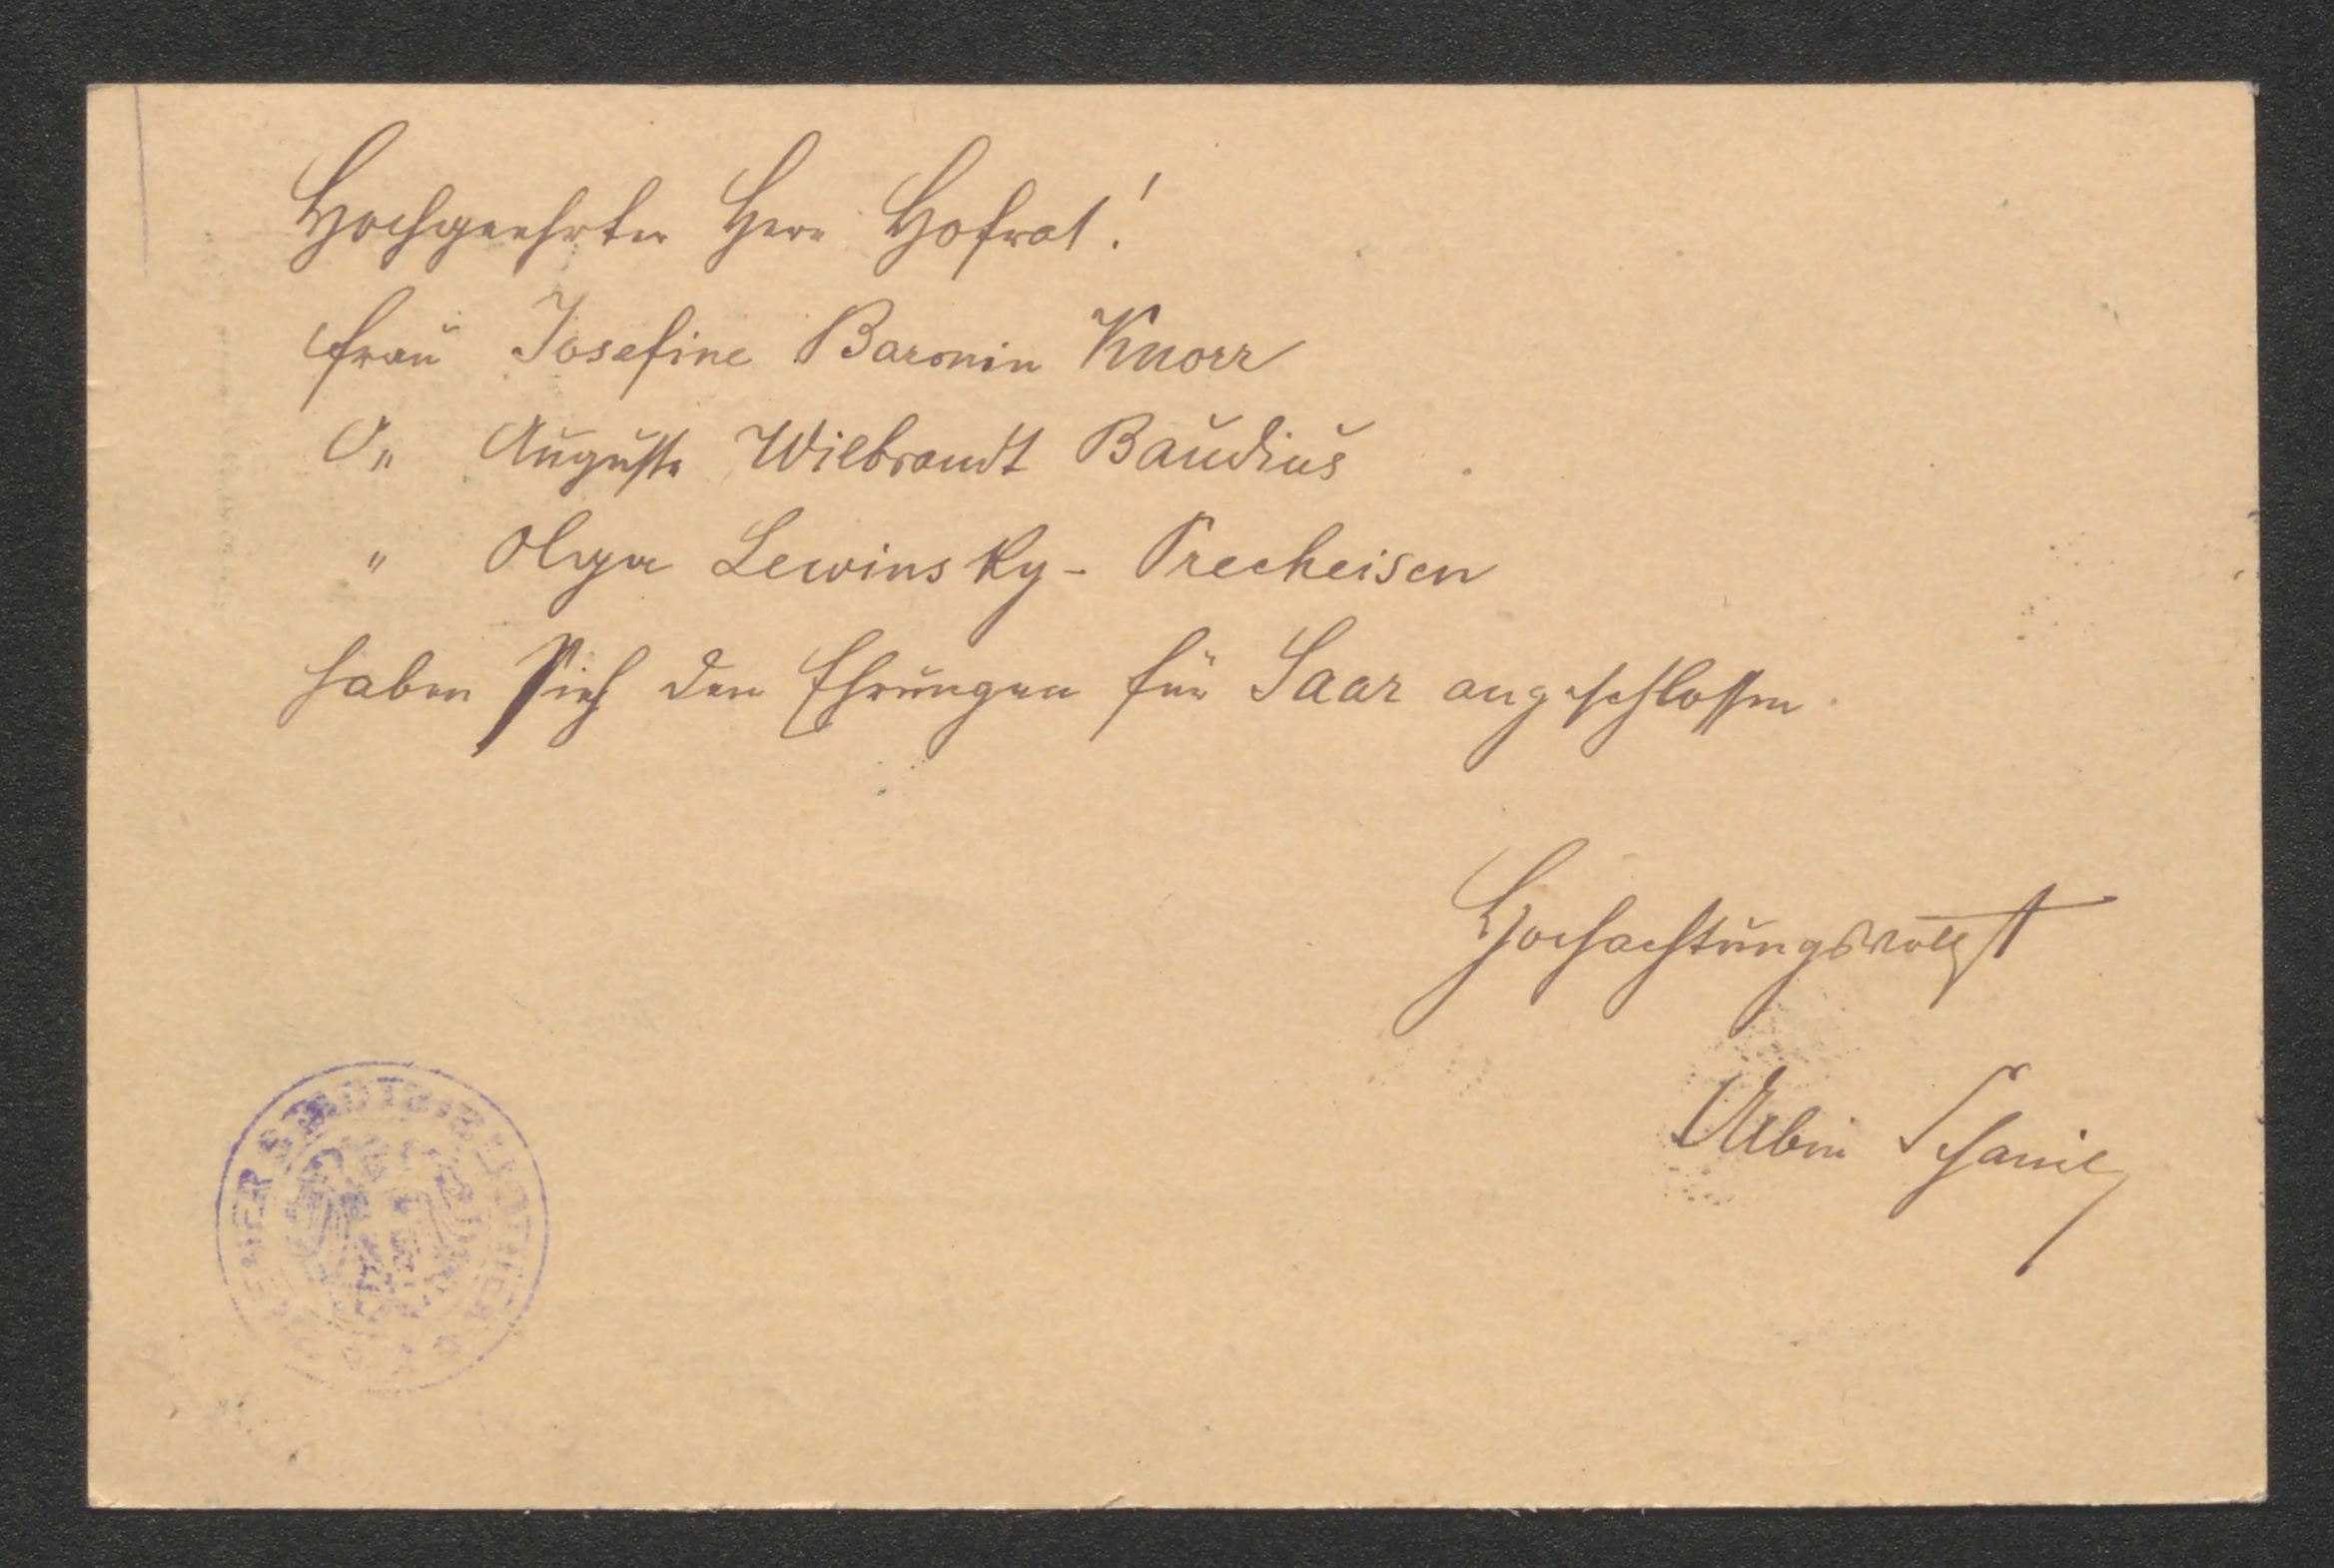 Hochgeehrter Herr Hofrat!
Frau Josefine Baronin Knorr
" Auguste Wilbrandt Baudius
" Olga Lewinsky - Precheisen
haben sich den Ehrungen für Saar angeschlossen.
Hochachtungsvollst